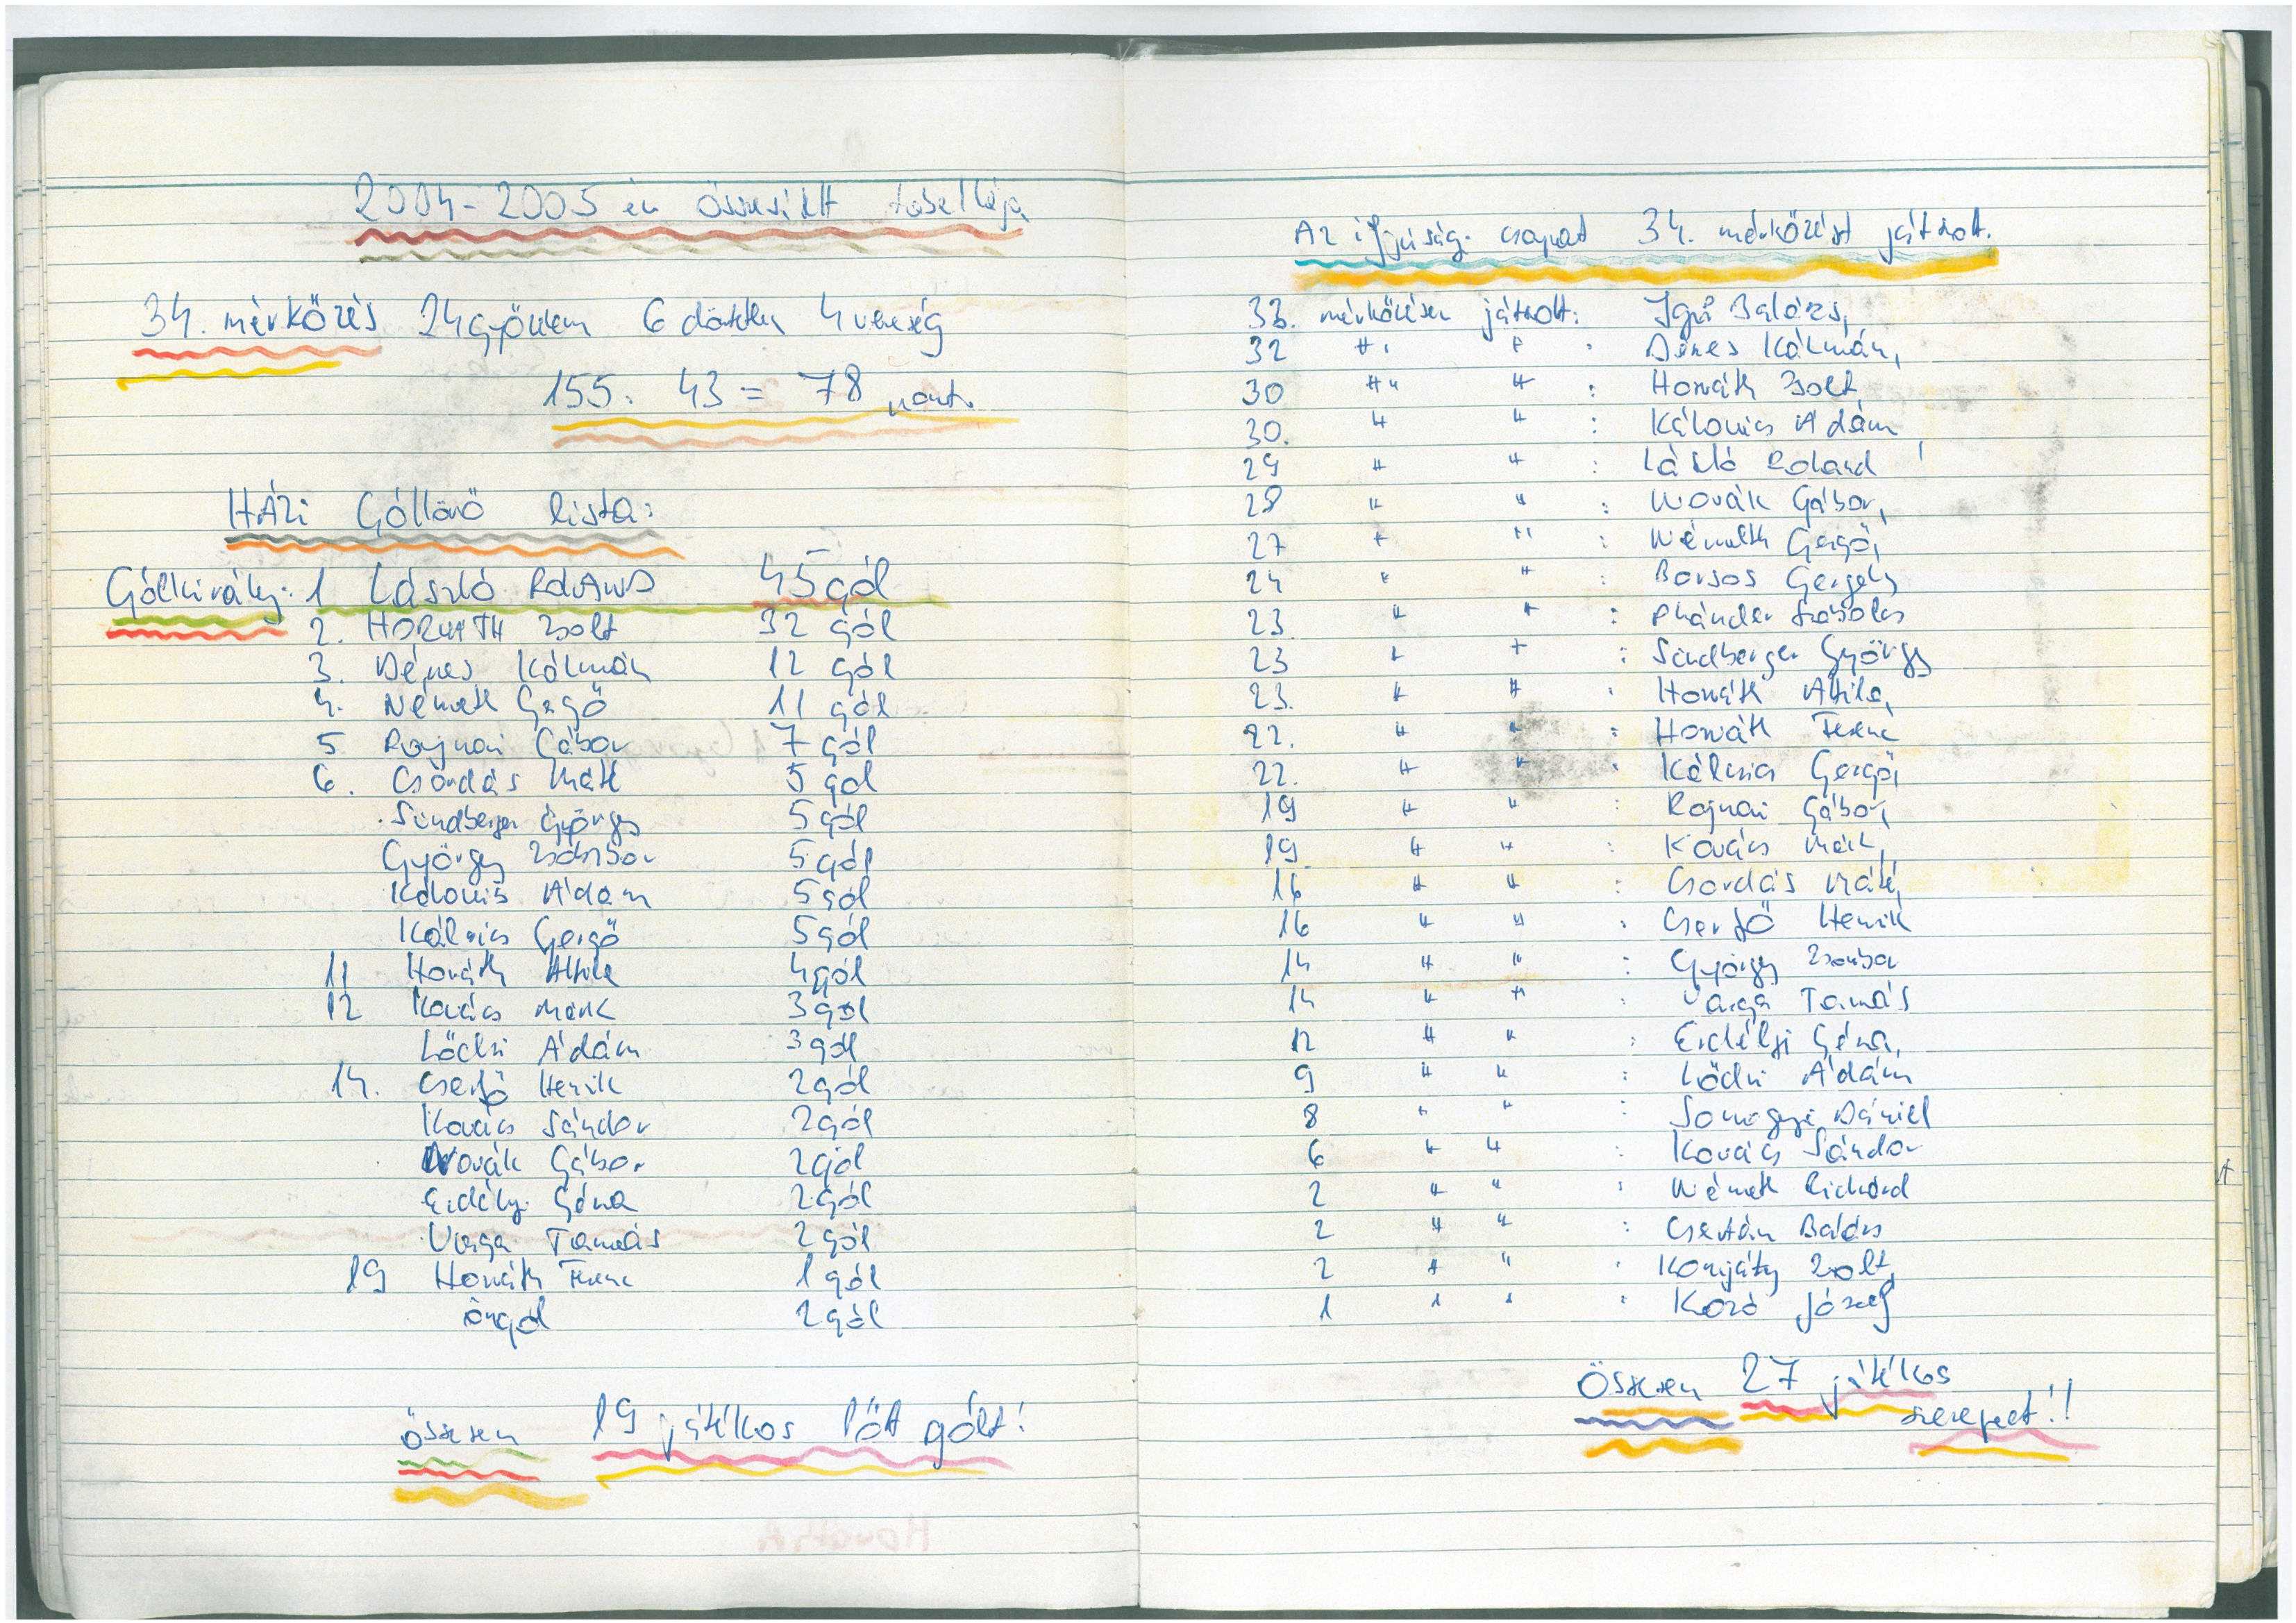 2004-2005 év összesített tabellája
34. mérkőzés 24 győzelem 6 döntetlen 4 vereség
155: 43 = 78 pont.
HÁZi Góllövő lista:
Gólkirály: 1 László ROLAND 45 gól
2. HORVÁTH Zsolt 32 gól
3. Dénes Kálmán 12 gól
4. Németh Gergő 11 gól
5 Rajnai Gábor 7 gól
6. Csordás Máté 5 gól
Sindberger György 5 gól
György Zsombor 5 gól
Kálovics Ádám 5 gól
Gergő 5 gól
11 Horváth Attila 4 gól
12 Kovács Márk 3 gól
Lődri Ádám 3 gól
14. Cserfő Henrik 2 gól
Kovács Sándor 2 gól
Novák Gábor 2 gól
Erdélyi Géza 2 gól
Varga Tamás 2 gól
19 Horváth Ferenc 1 gól
öngól 2 gól
összesen 19 játékos lőtt gólt!
Az ifjúsági csapat 34. mérkőzést játszott.
33. mérkőzésen játszott: Balázs,
32 " " : Dénes Kálmán,
30 " " : Horváth Zsolt,
30. " " : Kálovics Ádám,
29 " " : László Roland
28 " " : Novák Gábor,
27 " " : Németh Gergő,
24 " " : Borsos Gergely
23 " " : Szabolcs
23 " " : Sindberger György
23. " " : Horváth Attila,
22. " " : Horváth Ferenc
22. " " : Gergő,
19 " " : Rajnai Gábor,
19 " " : Kovács Márk,
16 " " : Csordás Máté,
16 " " : Cserfő Henrik
14 " " : György Zsombor
14 " " : Varga Tamás
12 " " : Erdélyi Géza,
9 " " : Lődri Ádám
8 " " : Somogyi Dániel
6 " " : Kovács Sándor
2 " " : Németh Richárd
2 " " : Csertán Balázs
2 " " : Komjáty Zsolt,
1 " " : József
Összesen 27 játékos
szerepelt!!